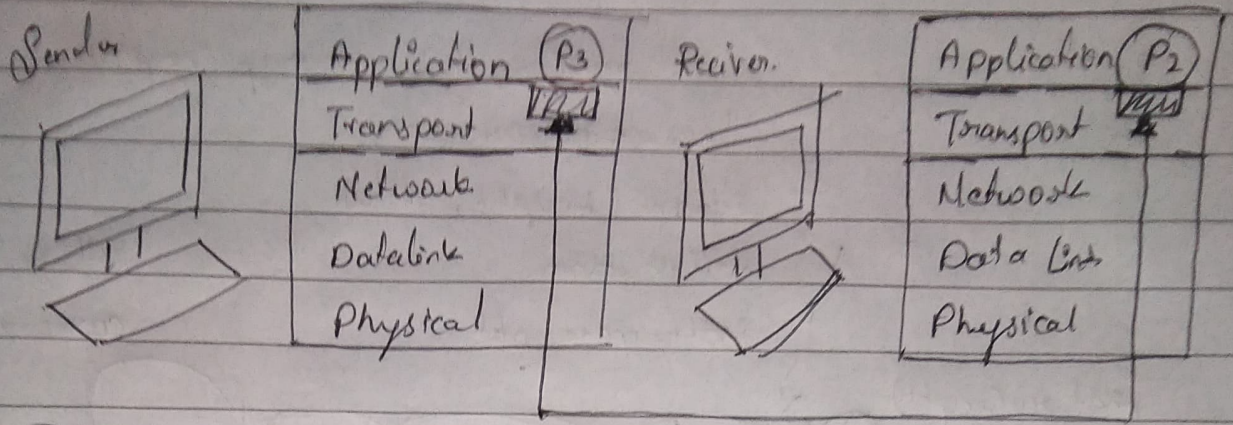 Sender
Application P3
Transport
Network
Datalink
Physical
Reciver.
Application P2
Transport
Network
Data Link
Physical